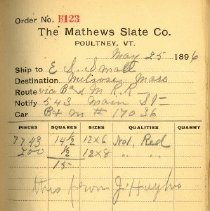 Order No. H123
The Mathews Slate Co.
POULTNEY, VT.
May 25 1896
Ship to E. S.
Destination Melrose Mass
Route via B & M R R
Notify 543 Main St
Car B & M # 17036
PIECES SQUARES SIZES QUALITIES QUANTITY
7743 14½ 12x6 Red
200 ½ 12x8 "
15
from J. Hughes